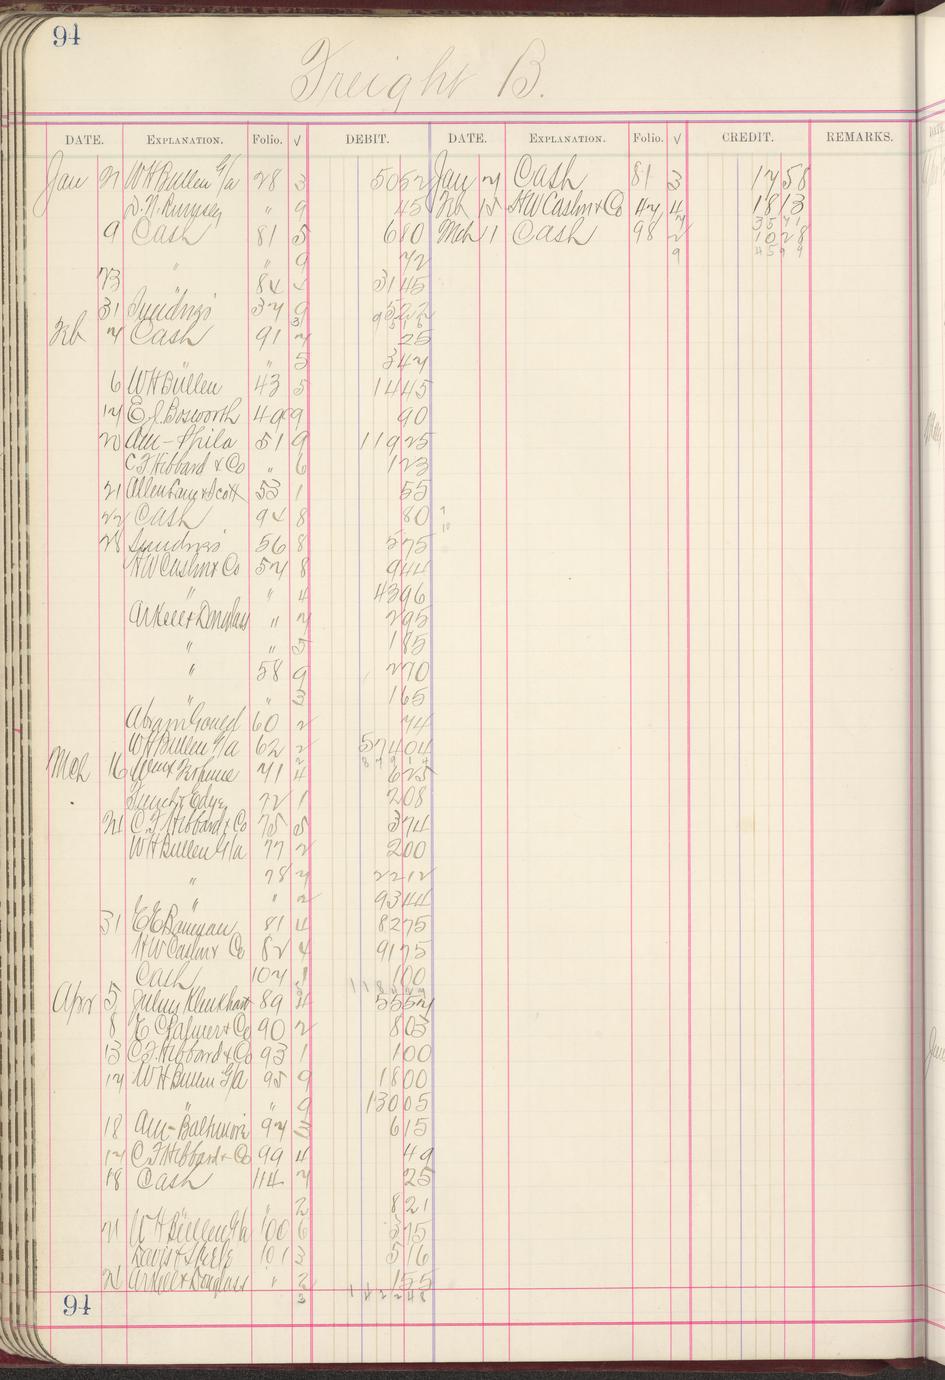 94
Freight B.
DATE. EXPLANATION. Folio. √ DEBIT. DATE. EXPLANATION. Folio. √ CREDIT. REMARKS.
Jan 2 W H Bullen G/a 28 3 50 52 Jan 7 Cash 81 3 17 58
D. N. Rumsey " 9 45 Feb 15 H W Caslin & Co 47 4 18 13
35 71
9 Cash 81 5 6 80 Mch 11 Cash 98 2 10 28
" " 9 72 9 45 99
23 84 31 45
31 Sundries 37 9 5 22
Feb 7 Cash 91 7 25
" 5 3 47
6 W H Bullen 43 5 14 45
17 E. J. Bosworth 49 9 90
20 Am - Phila 51 9 119 25
C F Hibbard & Co " 6 1 23
21 Allen Lane & Scott 53 1 55
22 Cash 94 8 80
28 Sundries 56 8 5 75
H W Caslin & Co 57 8 9 44
" " 4 43 96
Arkell & Douglass " 7 2 95
" " 5 1 85
" 58 9 2 70
" " 3 1 65
Abram Gould 60 2 74
W H Bullen G/a 62 2 574 04
Mch 16 71 4 6 25
72 1 2 08
21 C. F. Hibbard & Co 75 5 3 74
W H Bullen G/a 77 2 2 00
" 78 7 22 12
" " 2 93 44
31 81 4 82 75
H W Caslin & Co 82 4 91 75
Cash 107 1 1 00
Apr 5 Julius 89 4 55 57
8 E C Palmer & Co 90 2 8 03
13 C. F. Hibbard & Co 93 1 1 00
17 W H Bullen G/a 95 9 18 00
" " 9 130 05
18 Am - Baltimore 97 3 6 15
17 C F Hibbard & Co 99 4 49
18 Cash 114 7 25
" 2 8 21
21 W H Bullen G/a 100 6 3 75
Davis & 101 3 5 16
Arkell & Douglass " 2 1 55
94 3